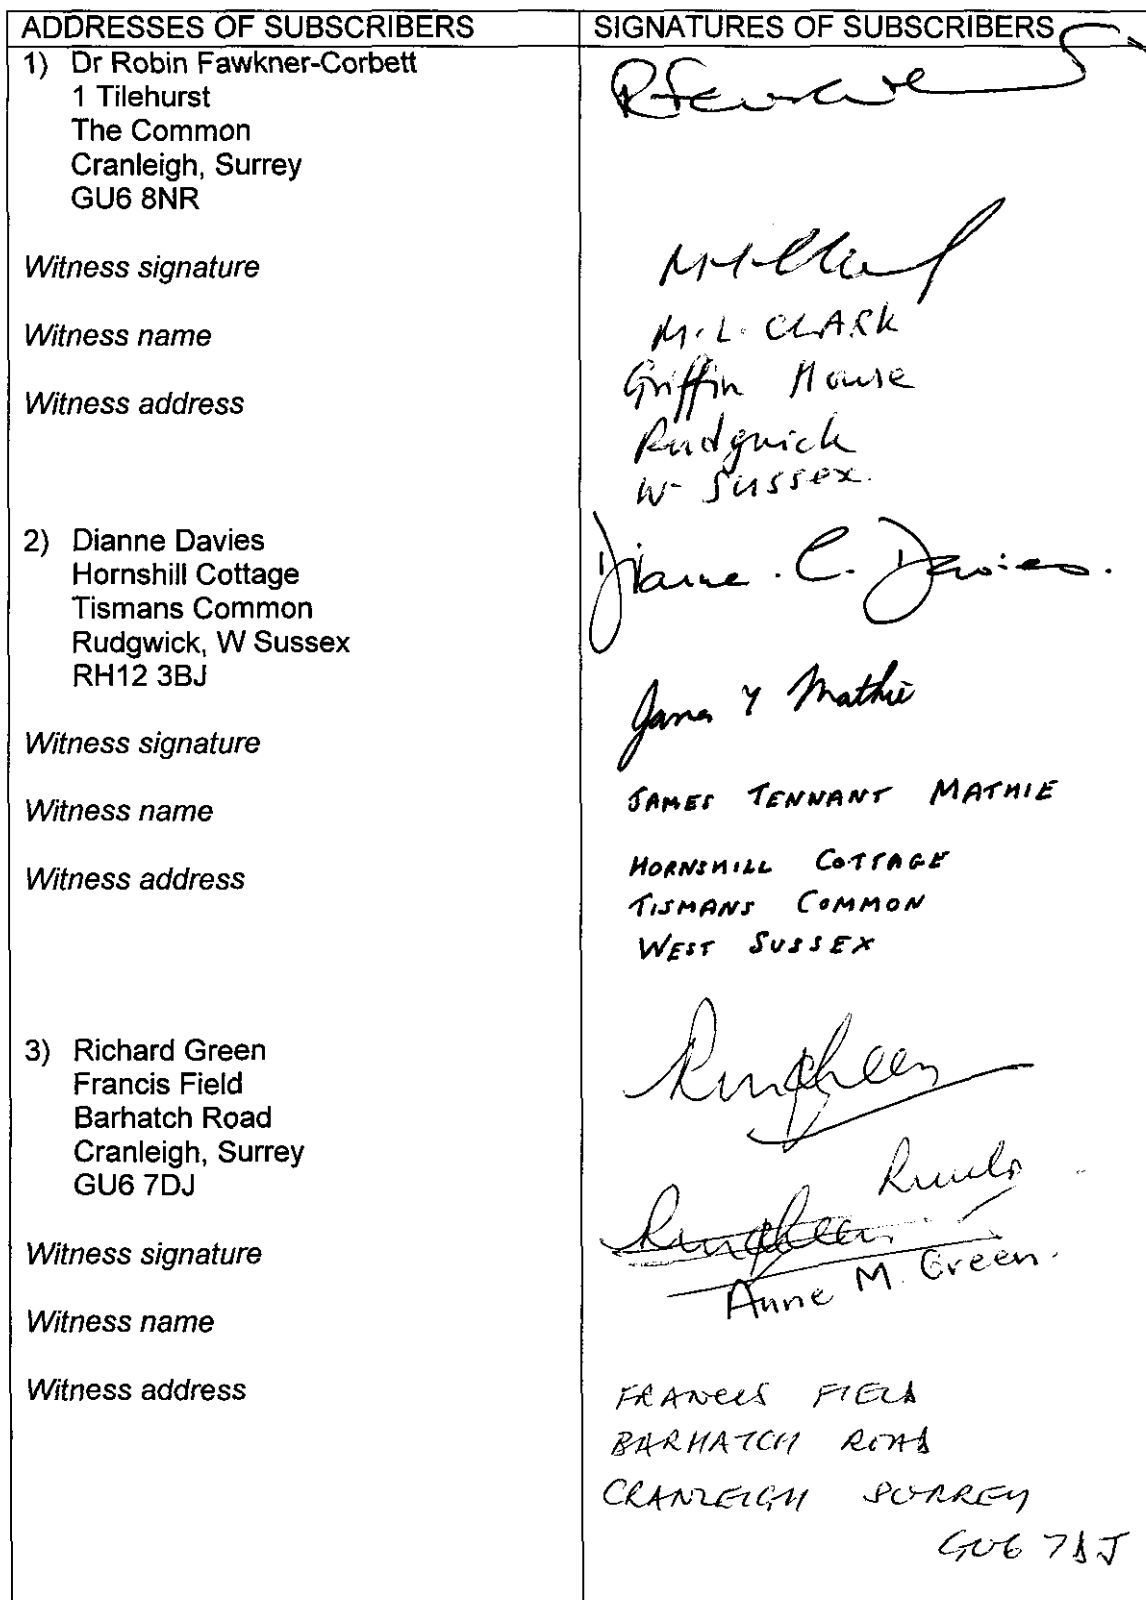 ADDRESSES OF SUBSCRIBERS SIGNATURES OF SUBSCRIBERS
1) Dr Robin Fawkner-Corbett
1 Tilehurst
The Common
Cranleigh, Surrey
GU6 8NR
Witness signature
Witness name M.L. CLARK
Witness address Griffin House
Rudgwick
W Sussex.
2) Dianne Davies Dianne. C. Davies.
Hornshill Cottage
Tismans Common
Rudgwick, W Sussex
RH12 3BJ
James T Mathie
Witness signature
Witness name JAMES TENNANT MATHIE
Witness address HORNSHILL COTTAGE
TISMANS COMMON
WEST SUSSEX
3) Richard Green
Francis Field
Barhatch Road
Cranleigh, Surrey
GU6 7DJ
Witness signature Anne M. Green.
Witness name
Witness address FRANCIS FIELD
BARHATCH ROAD
CRANLEIGH SURREY
GU6 7DJ